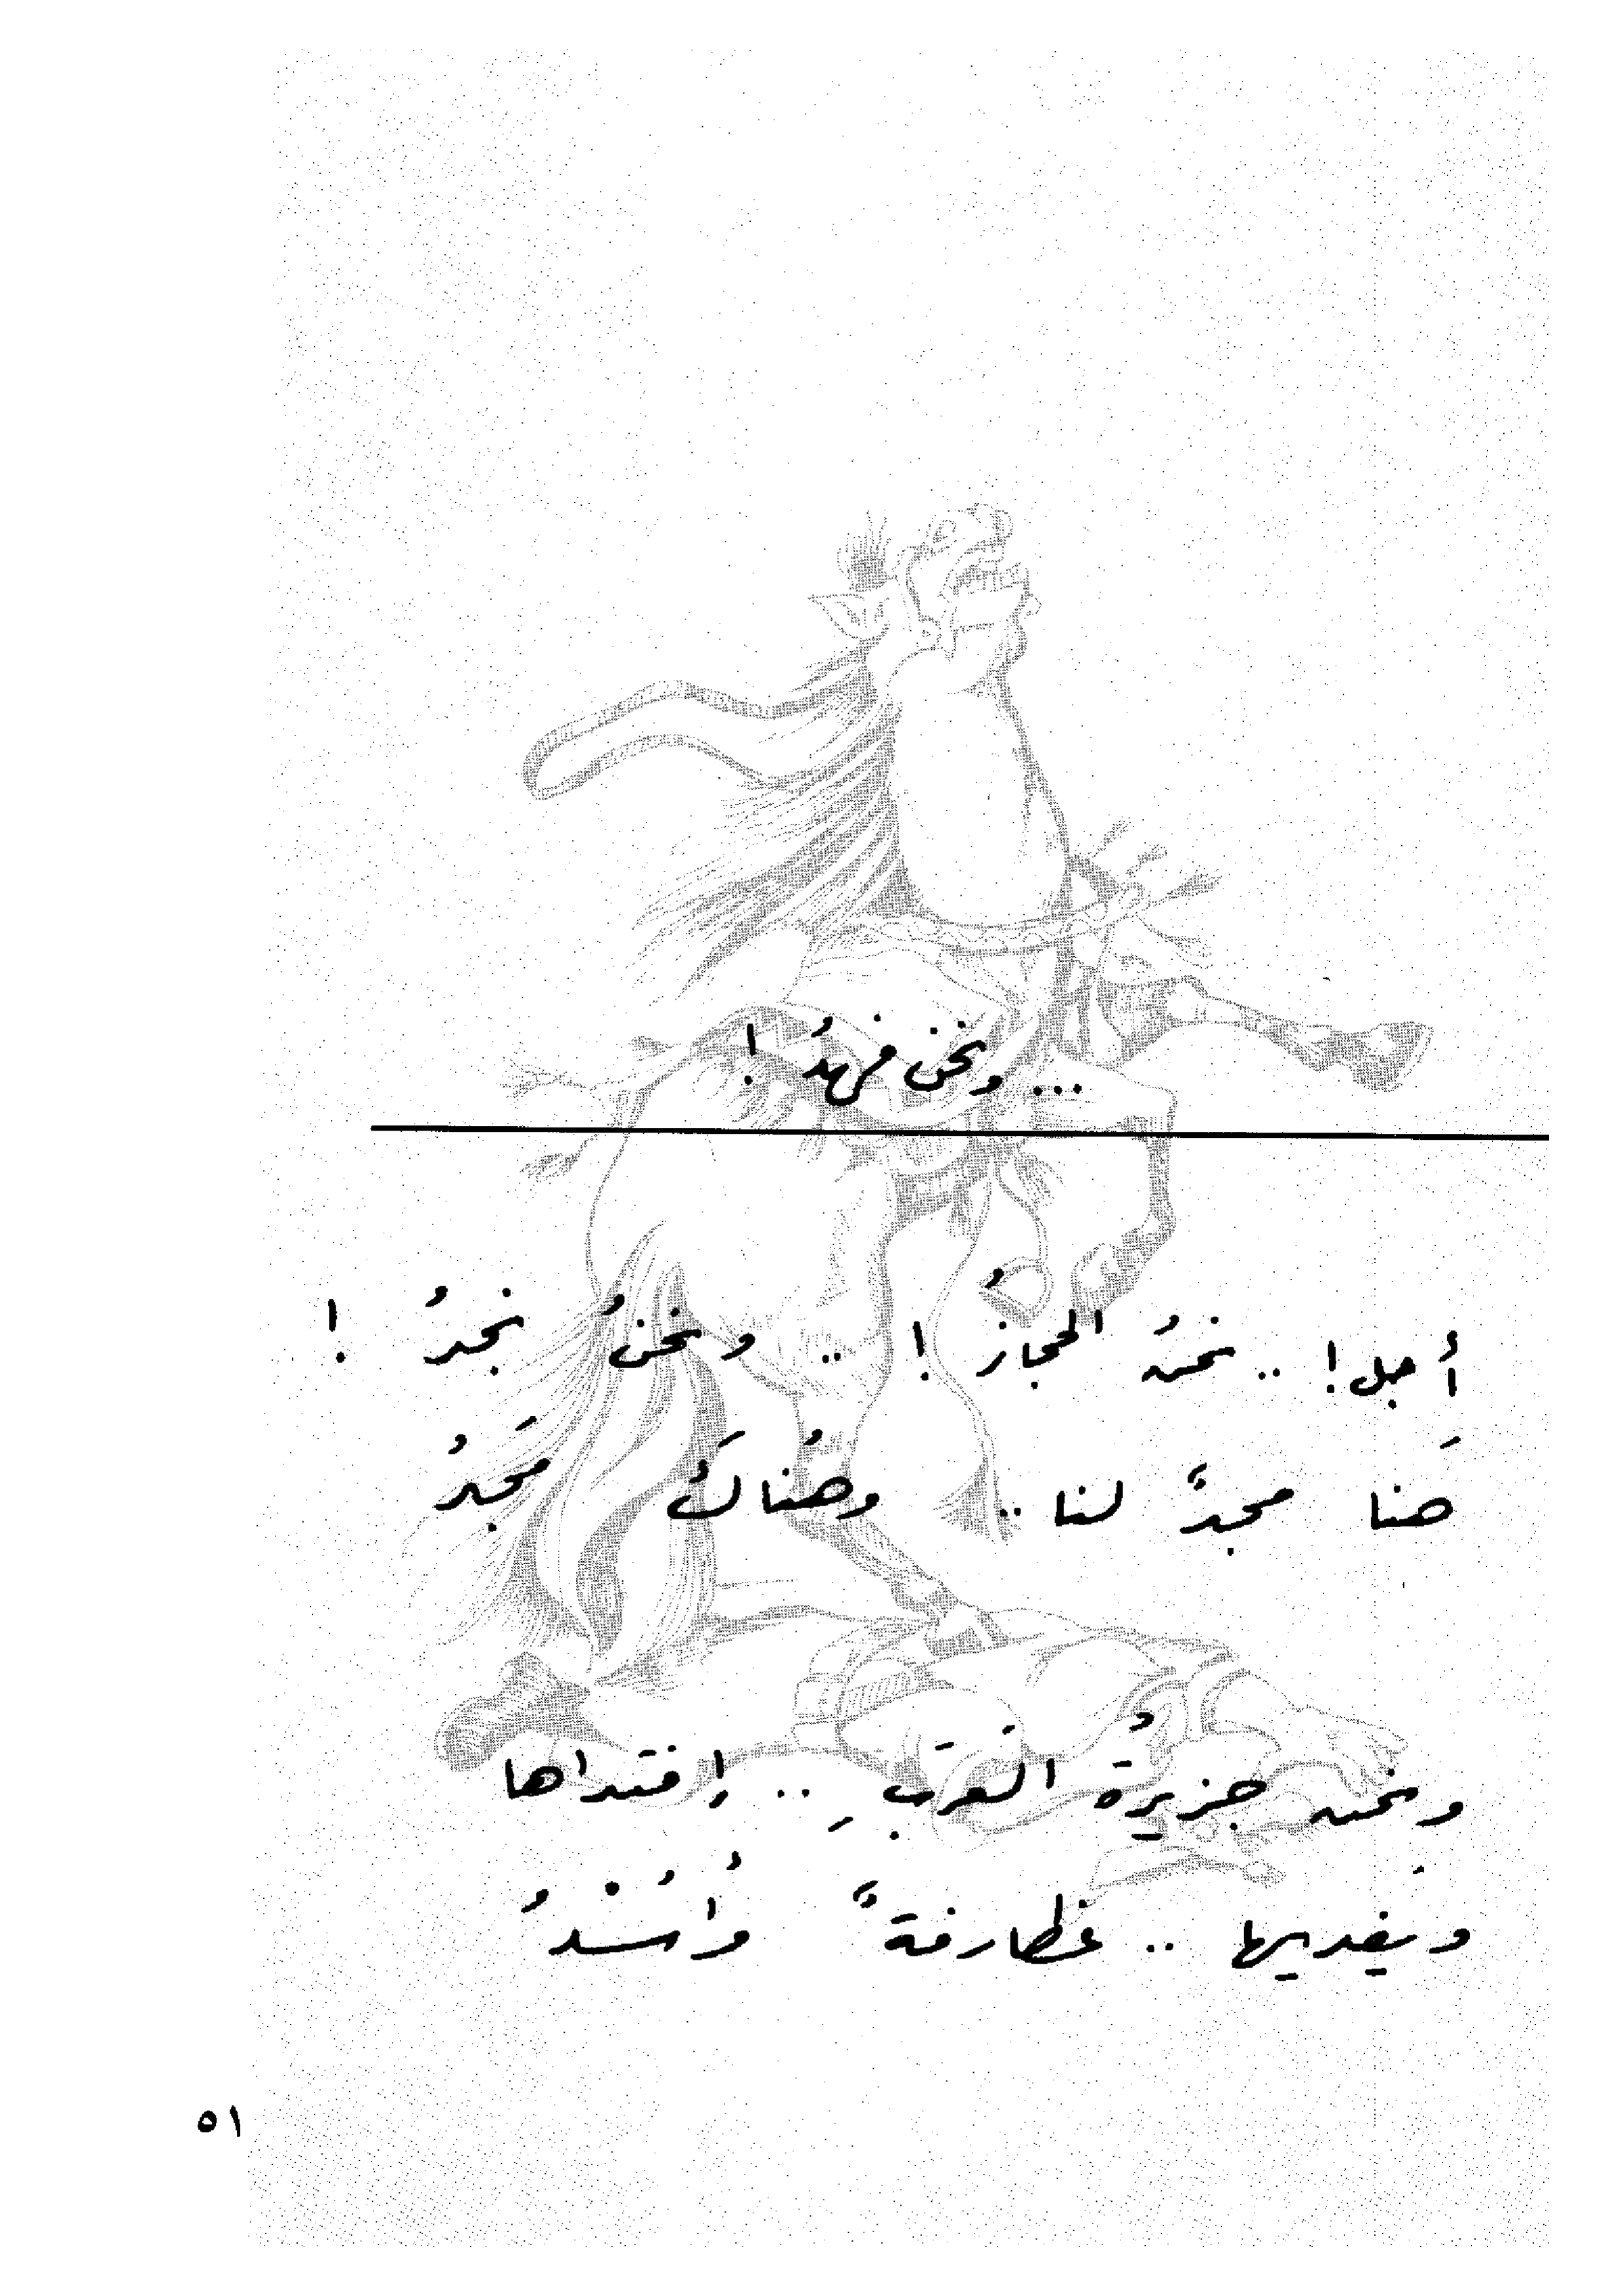 ... ونحن فهدُ !
أجل ! .. نحنُ الحجازُ ! .. ونحنُ نجدُ !
هَنا مجدٌ لنا .. وهُناكَ مَجدُ
ونحن جزيرةُ العَرَبِ .. إفتداها
ويفديها .. غطارفةٌ وأُسْدُ
٥١